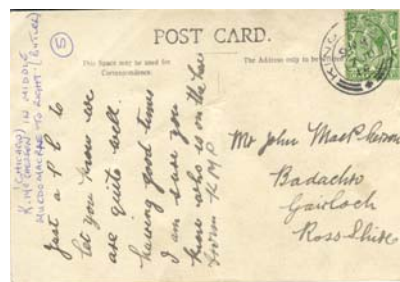 POST CARD.
This Space may be used for
Correspondence.
The Address only to be
KING
5
(CHICAGO)
K. McPHERSON IN MIDDLE
MURDO MACRAE TO RIGHT (BUTLER)
Just a P C to
let you know we
are quite well.
having good times
I am sure you
know who is on the
from K M P
Mr John MacPherson
Badachro
Gairloch
Ross-Shire